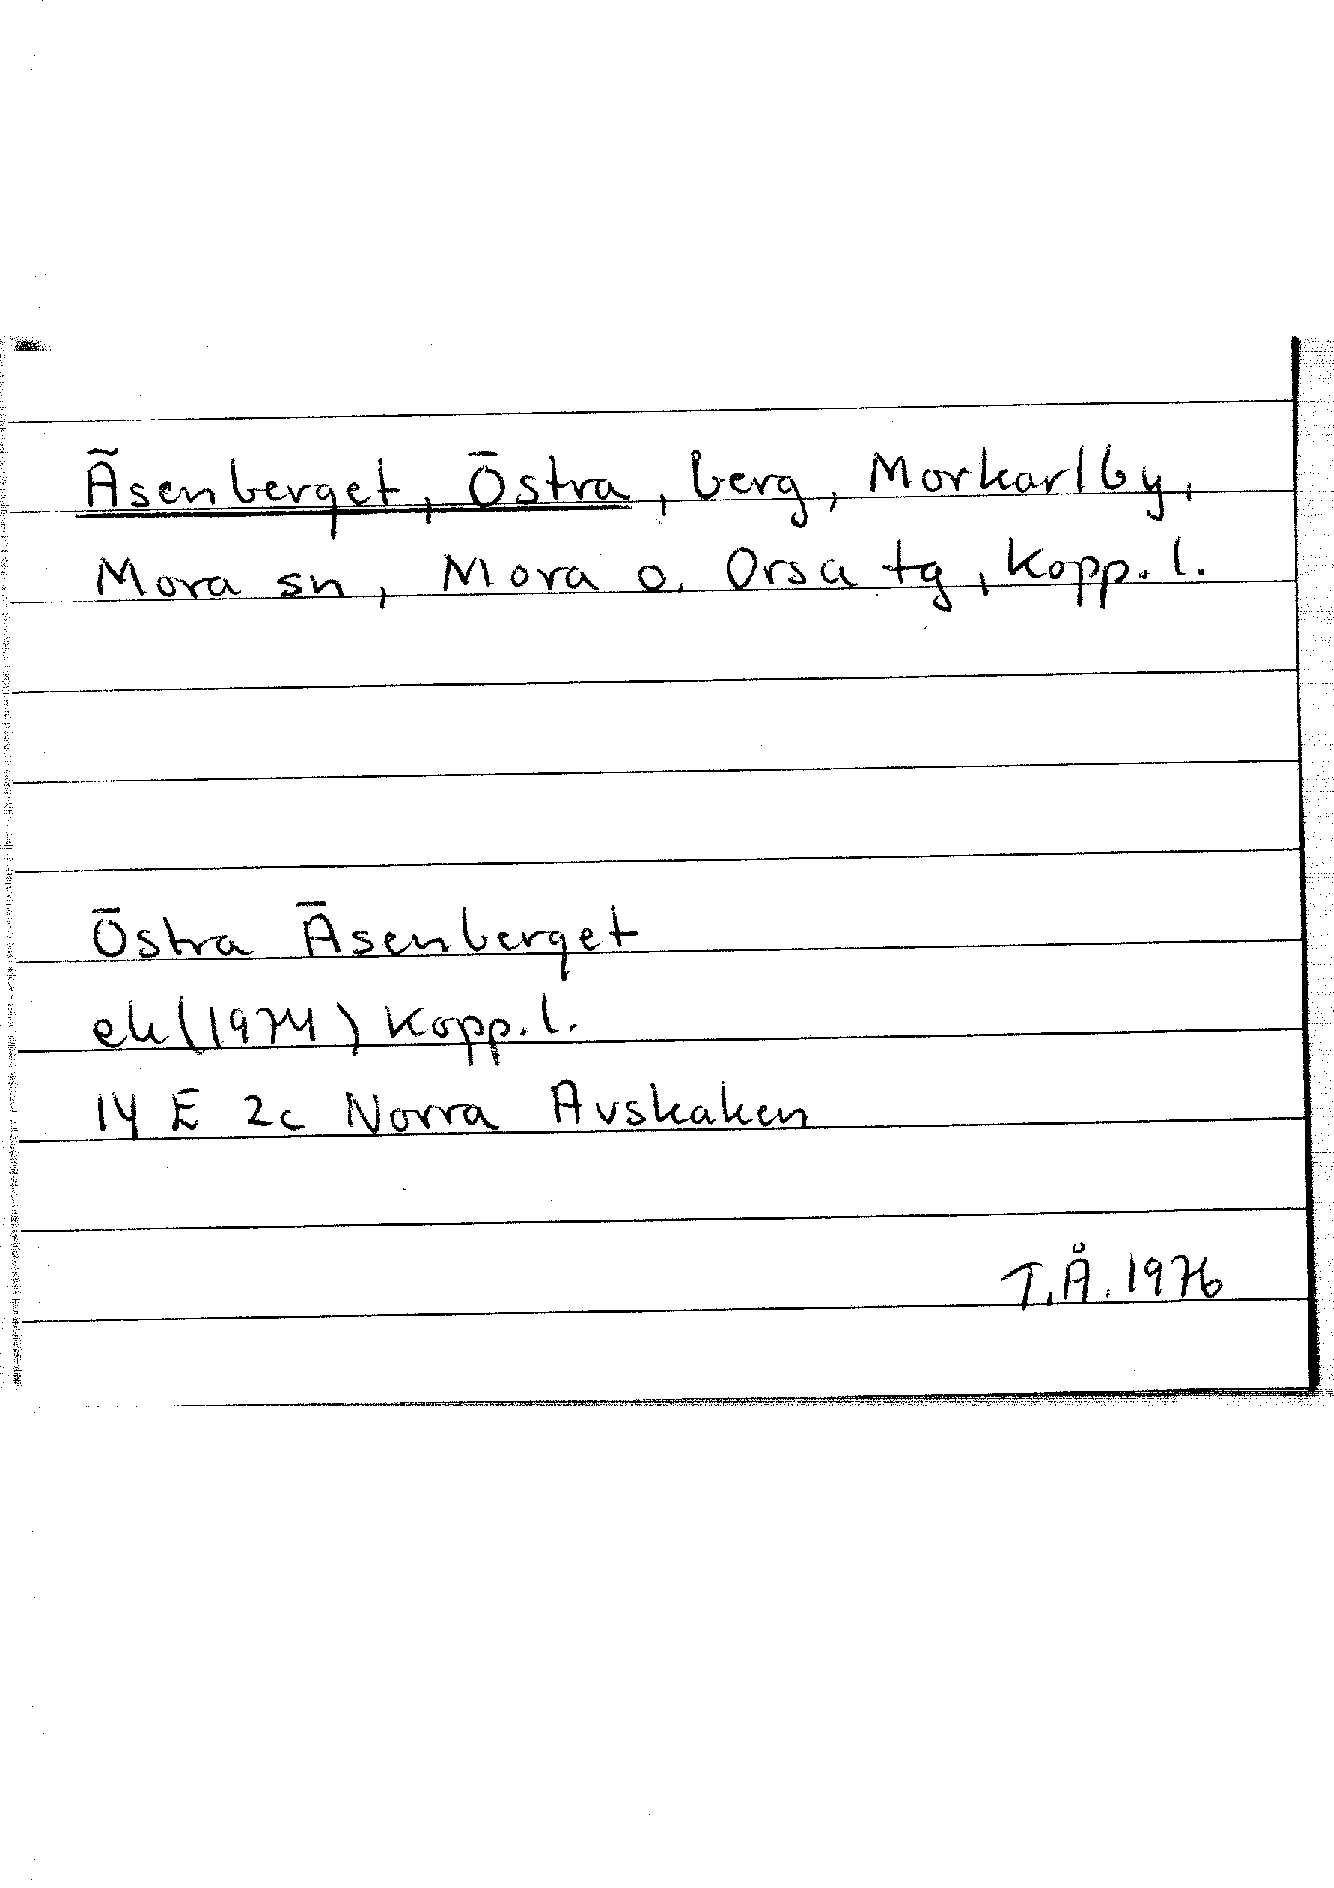 Äsenberget, Östra, berg, Morkarlby,
Mora sn, Mora o. Orsa tg, Kopp. l.
Östra Äsenberget
ek (1974) Kopp. l.
14 E 2c Norra Avskaken
T.Å. 1976